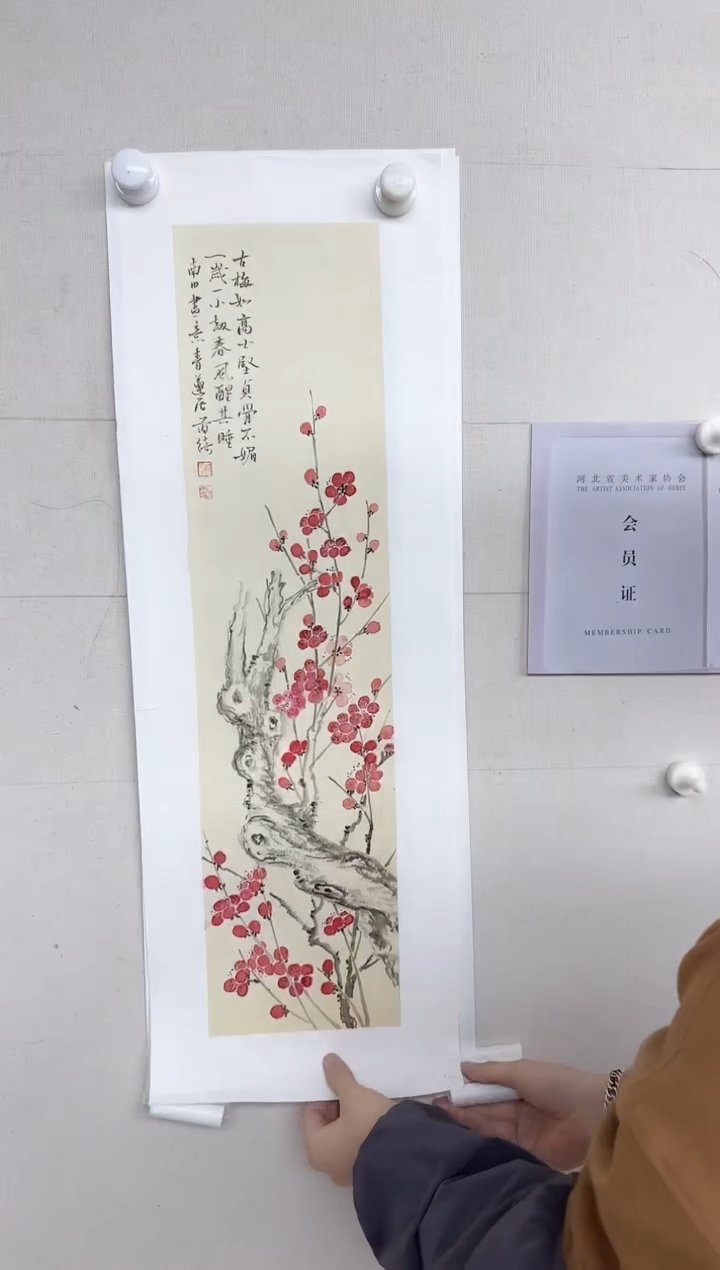 古梅如高士堅貞骨不媚
一歲一小劫春風醒其睡
南田畫意青
河北省美术家协会
THE ARTIST ASSOCIATION OF HEBEI
会
员
证
MEMBERSHIP CARD